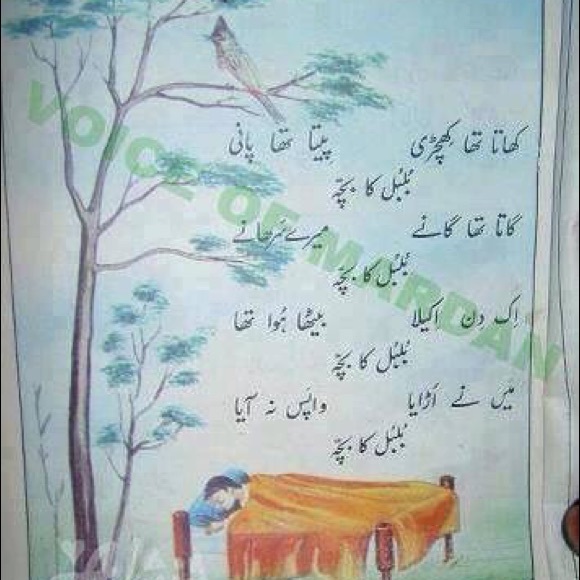 کھاتا تھا کھچڑی پیتا تھا پانی
بُلبُل کا بچّہ
گاتا تھا گانے میرے سَرھانے
بُلبُل کا بچّہ
اِک دِن اکیلا بیٹھا ہُوا تھا
بُلبُل کا بچّہ
مَیں نے اُڑایا واپَس نہ آیا
بُلبُل کا بچّہ
VOICE OF MARDAN